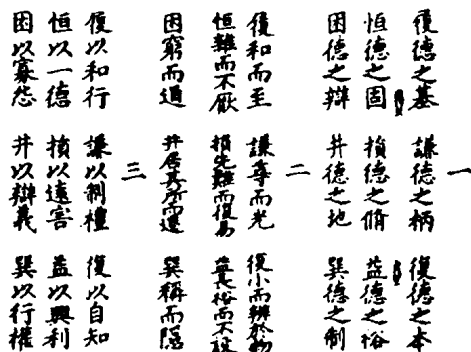 一
履德之基 謙德之柄 復德之本
恒德之固 損德之脩 益德之裕
困德之辯 井德之地 巽德之制
二
履和而至 謙尊而光 復小而辨於物
恒雜而不厭 損先難而後易 益長裕而不設
困窮而通 井居其所而遷 巽稱而隱
三
履以和行 謙以制禮 復以自知
恒以一德 損以遠害 益以興利
困以寡怨 井以辯義 巽以行權